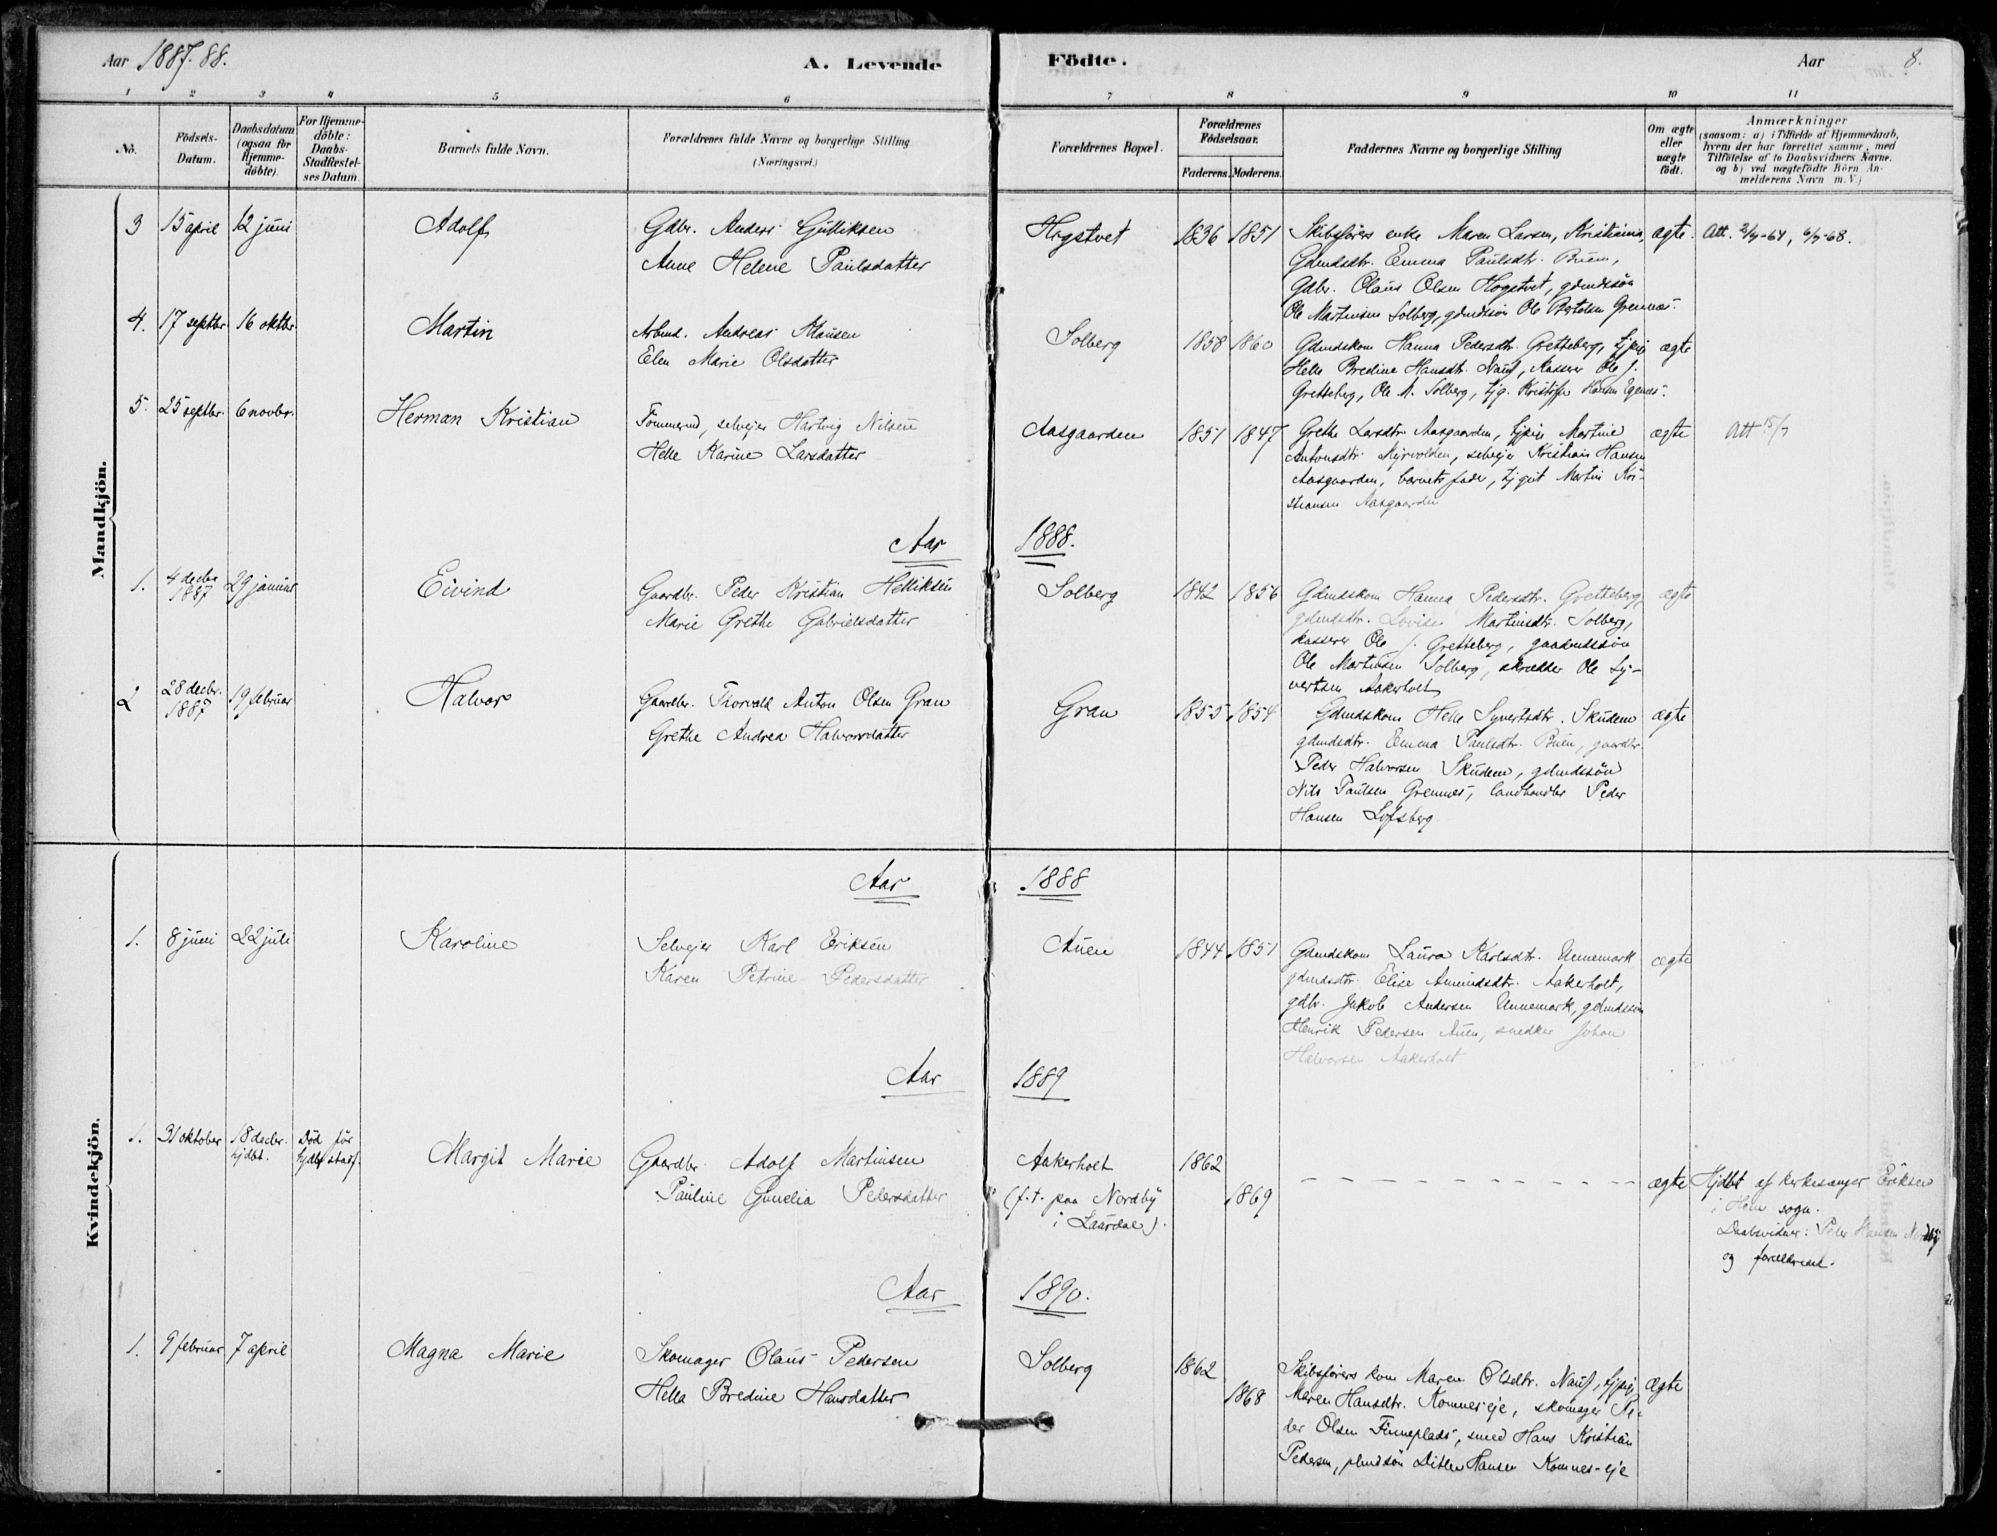 Aar 1887-88.
A. Levende
Födte.
Aar 8.
1 2 3 4 5 6 7 8 9 10 11
No.
Födsels-Datum.
Daabsdatum (ogsaa for Hjemme-döbte).
For Hjemme-döbte: Daabs-Stadfæstel-ses Datum.
Barnets fulde Navn.
Forældrenes fulde Navne og borgerlige Stilling
(Næringsvei.)
Forældrenes Bopæl.
Forældrenes Födselsaar.
Faderens. Moderens.
Faddernes Navne og borgerlige Stilling
Om ægte eller uægte födt.
Anmærkninger
(saasom: a) i Tilfælde af Hjemmedaab,
hvem der har forrettet samme, med
Tilföielse af to Daabsvidners Navne.
og b) ved uægtefödte Börn An-
melderens Navn m.V.)
Mandkjön.
3 15 april 12 juni Adolf Gdbr. Anders Gulliksen
Anne Helene Paulsdatter
Hogstvet 1836 1851 Skibsförers enke Maren Larsen, Kristiania, ægte. Att.
Gdmdsdtr. Emma Paulsdtr. Buen,
Gdbr. Olaus Olsen Hogstvet, gdmdssön
Ole Martinsen Solberg, gdmdssön Ole Bertelsen Grennes.
4. 17 septbr. 16 oktbr. Martin Arbmd. Andreas Hansen
Elen Marie Olsdatter
Solberg 1858 1860 Gdmdskone Hanna Pedersdtr. Gretteberg, tjpige ægte
Helle Bredine Hansdtr. Nauf, kasserer Ole J.
Gretteberg, Ole M. Solberg, tjg. Kristoffer Hansen
5. 25 septbr. 6 novbr. Herman Kristian Tömmermd, selveier Hartvig Nilsen
Helle Karine Larsdatter
Aasgaarden 1851 1847 Grethe Larsdtr. Aasgaarden, tjpige Martine ægte Att 15/7
Antonsdtr. selveier Kristian Hansen
Aasgaarden, barnets fader, tjgut Martin Kri-
stiansen Aasgaarden
Aar 1888.
1. 4 decbr. 1887 29 januar Eivind Gaardbr. Peder Kristian Helliksen
Marie Grethe Gabrielsdatter
Solberg 1842 1856 Gdmdskone Hanna Pedersdtr. Gretteberg, ægte
gdmdsdtr. Lovise Martinsdtr. Solberg,
kasserer Ole J. Gretteberg, gaardmdssön
Ole Martinsen Solberg, skrædder Ole Sy-
vertsen Aakerholt
2 28 decbr. 1887 19 februar Halvor Gaardbr. Thorvald Anton Olsen Gran
Grethe Andrea Halvorsdatter
Gran 1855 1854 Gdmdskone Helle Syvertsdtr. Skudem ægte
gdmdsdtr. Emma Paulsdtr. Buen, gaardbr.
Peder Halvorsen Skudem, gdmdssön
Nils Paulsen Grennes, landhandler Peder
Hansen Lofsberg.
Kvindekjön.
Aar 1888
1. 8 juni 22 juli Karoline Selveier Karl Eriksen
Karen Petrine Pedersdatter
Auen 1844 1851 Gdmdskone Laura Karlsdtr. Unnemark ægte
gdmdsdtr. Elise Amundsdtr. Aakerholt,
gdbr. Jakob Andersen Unnemark, gdmdssön
Henrik Pedersen Auen, snedker Johan
Halvorsen Aakerholt
Aar 1889
1. 31 oktober 18 decbr. hjdbt. Död för hjdbs stadf. Margit Marie Gaardbr. Adolf Martinsen
Pauline Gunelia Pedersdatter
Aakerholt
(f.t. paa Nordby
i Laurdal).
1862 1869 ægte Hjdbt af kirkesanger Eriksen
i Hem sogn.
Daabsvidner: Peder Hansen Nordby
og forældrene.
Aar 1890.
1. 9 februar 7 april Magna Marie Skomager Olaus Pedersen
Hella Bredine Hansdatter
Solberg 1862 1868 Skibsförers kone Maren Olsdtr. Nauf, tjpige ægte
Maren Hansdtr. Komnes eje, skomager Pe-
der Olsen Finneplads, smed Hans Kristian
Pedersen, Ditlev Hansen Komnes-eje